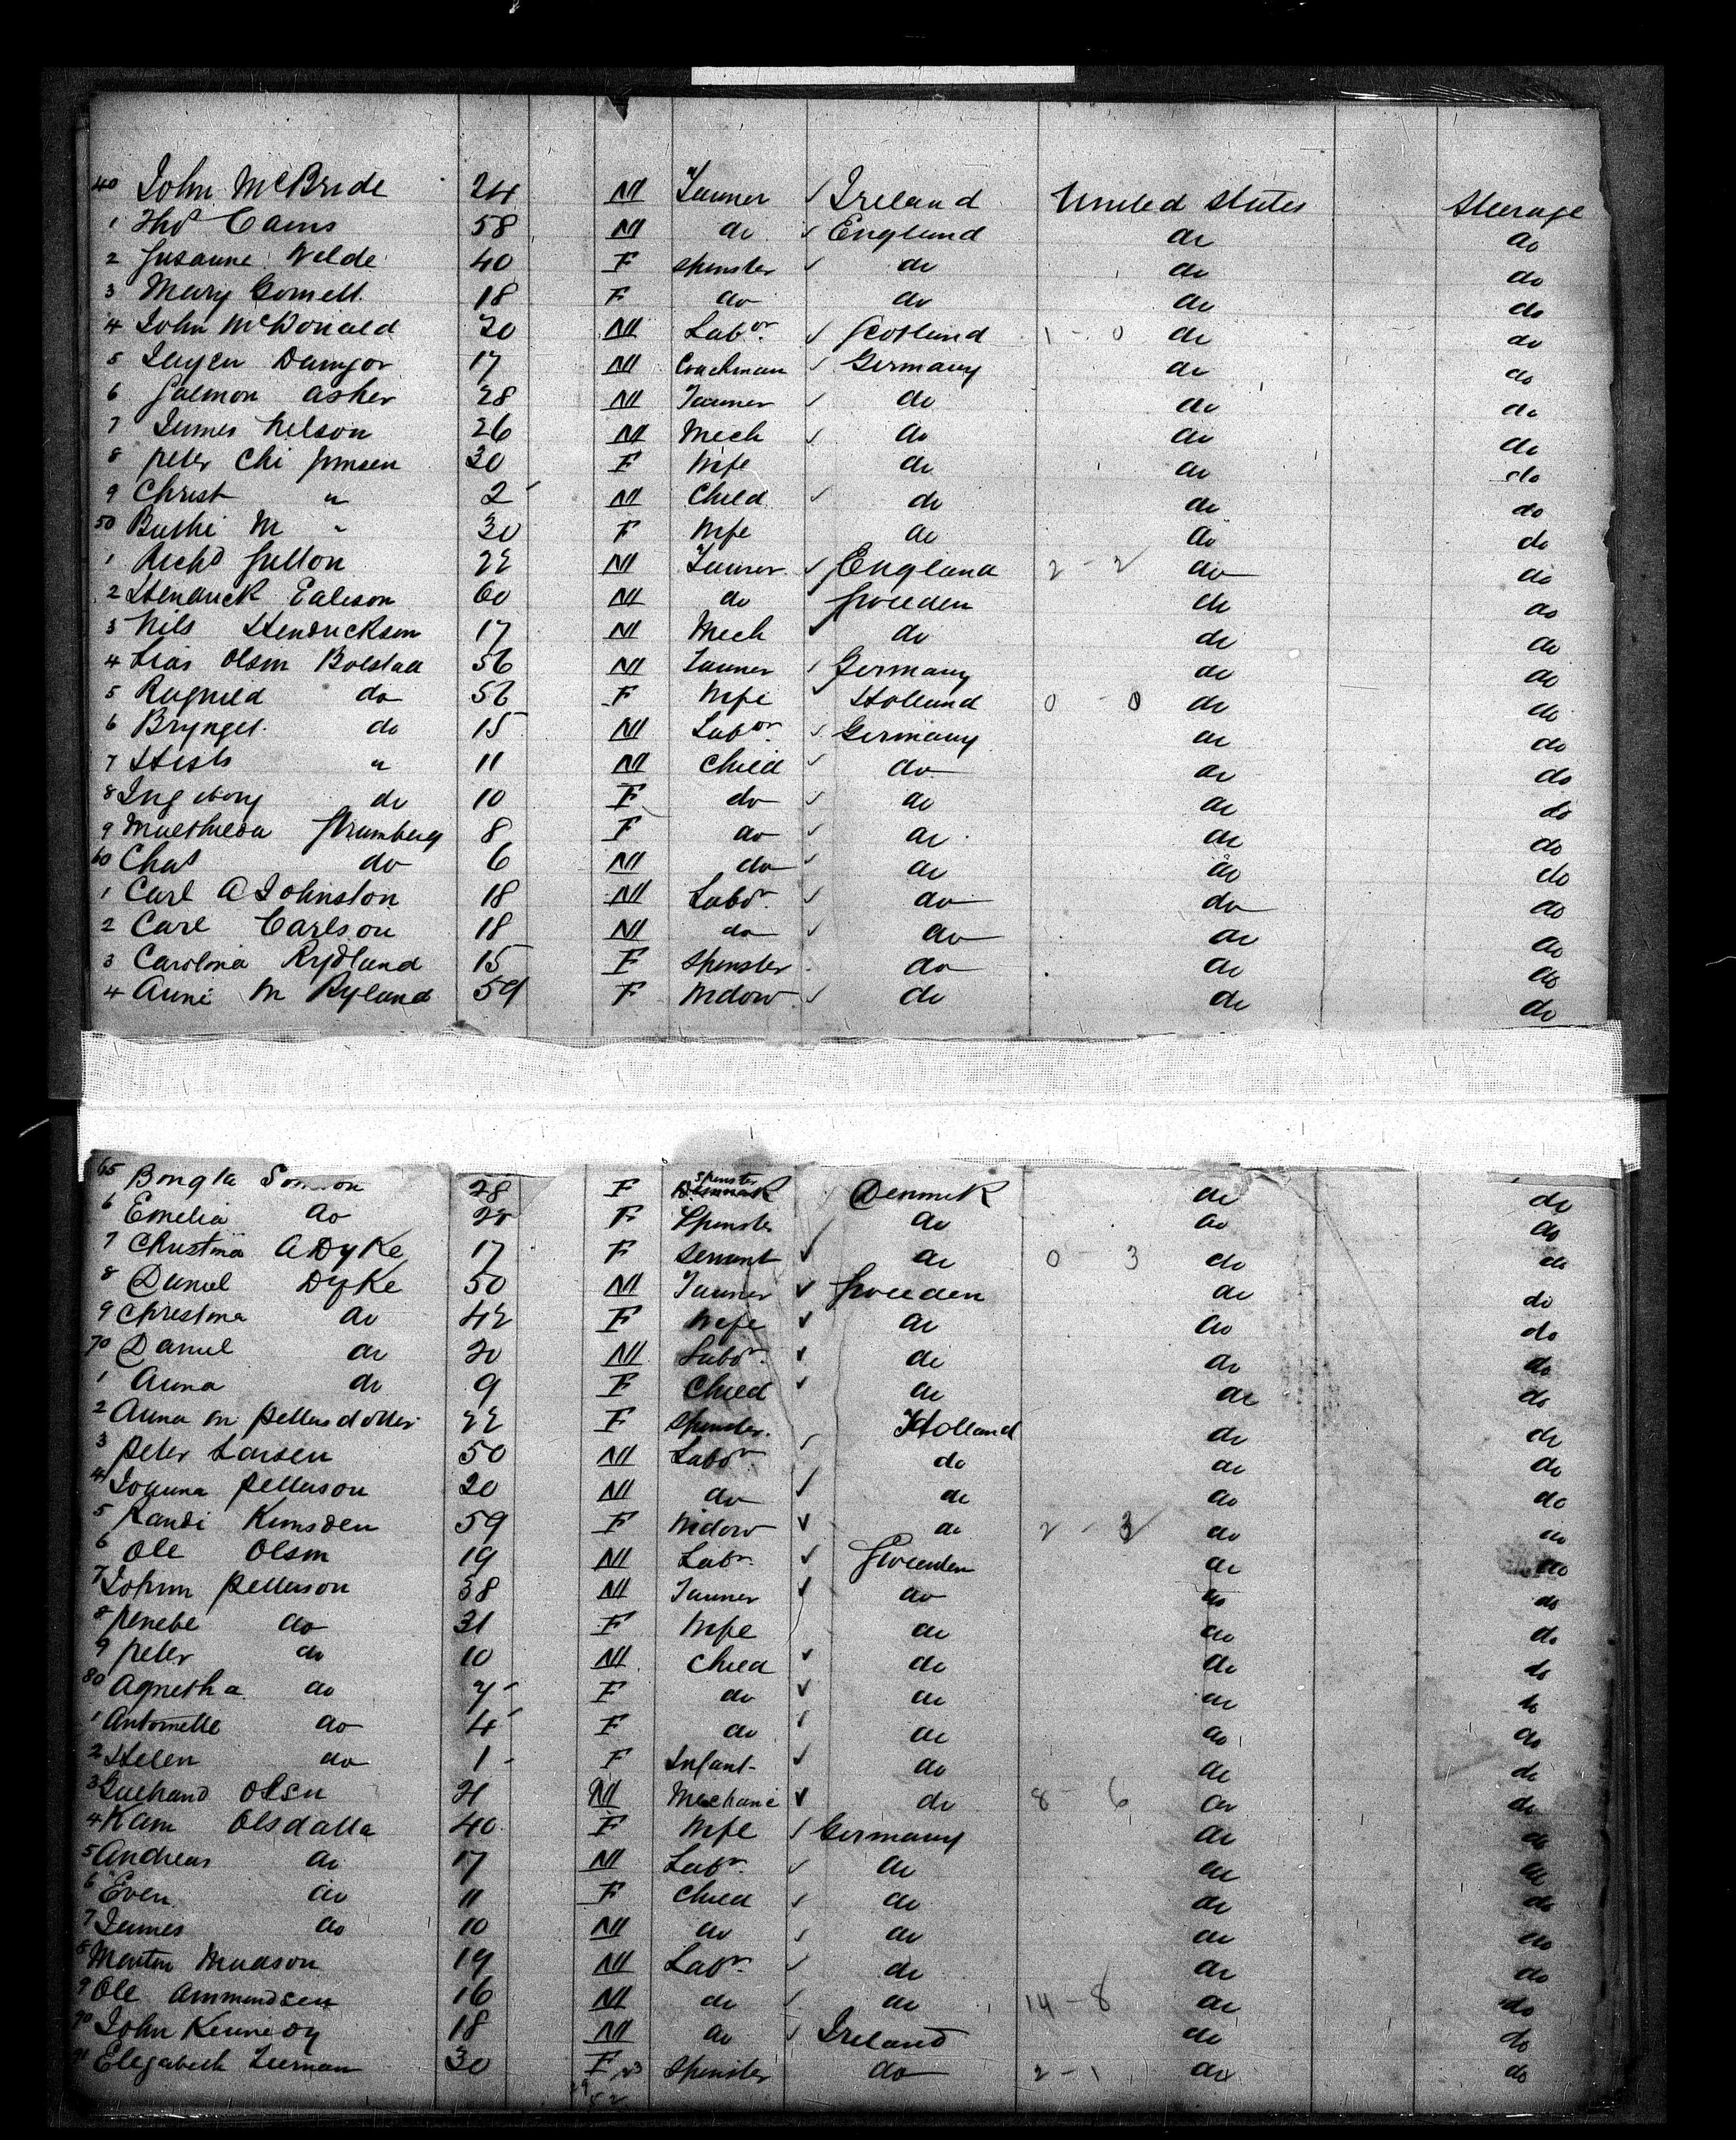 40 John McBride 24 M Farmer Ireland United States Steerage
1 Thos Cams 58 M do England do do
2 Susanne Velde 40 F Spinster do do do
3 Mary Gomell 18 F do do do do
4 John McDonald 20 M Labor Scotland 1 - 0 do do
5 Damgor 17 M Coachman Germany do do
6 Salmon Asher 28 M Farmer do do do
7 James Nelson 26 M Mech do do do
8 Peter Chi Jonsen 30 F Wife do do do
9 Christ " 2 M Child do do do
50 M " 30 F Wife do do do
1 Richd Sutton 22 M Farmer England 2 - 2 do do
2 Hendrick 60 M do Sweden do do
3 Nils Hendricksen 17 M Mech do do do
4 Olsen Bolstad 56 M Farmer Germany do do
5 Ragnild do 56 F Wife Holland 0 - 0 do do
6 Bryngel do 15 M Labor Germany do do
7 " 11 M Child do do do
8 Ingeborg do 10 F do do do do
9 Strumberg 8 F do do do do
60 Chas do 6 M do do do do
1 Carl A Johnston 18 M Labor do do do
2 Carl Carlson 18 M do do do do
3 Carolina Rydlund 15 F Spinster do do do
4 Anne M Ryland 59 F Widow do do do
65 Bongta 28 F Spinster Denmk do do
6 Emelia do F Spinster do do do
7 Christina A Dyke 17 F Servant do 0 - 3 do do
8 Daniel Dyke 50 M Farmer Sweden do do
9 Christina do 42 F Wife do do do
70 Daniel do 20 M Labor do do do
1 Anna do 9 F Child do do do
2 Anna M Pettersdotter 22 F Spinster Holland do do
3 Peter Larsen 50 M Labor do do do
4 Petterson 20 M do do do do
5 Randi 59 F Widow do 2 - 3 do do
6 Ole Olsen 19 M Labr Sweden do do
7 Johan Petterson 38 M Farmer do do do
8 do 31 F Wife do do do
9 Peter do 10 M Child do do do
80 Agnetha do 7 F do do do do
1 Antoinette do 4 F do do do do
2 Helen do 1 F Infant do do do
3 Olsen 21 M Mechanic do 8 - 6 do do
4 Kam Olsdatta 40 F Wife Germany do do
5 Andreas do 17 M Labr do do do
6 Even do 11 F Child do do do
7 James do 10 M do do do do
8 Morten Madson 19 M Labr do do do
9 Ole Ammundsen 16 M do do 14 - 8 do do
90 John Kennedy 18 M do Ireland do do
91 Elizabeth 30 F Spinster do 2 - 1 do do